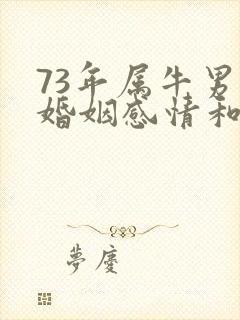 73年属牛男
婚姻感情和
夢慶